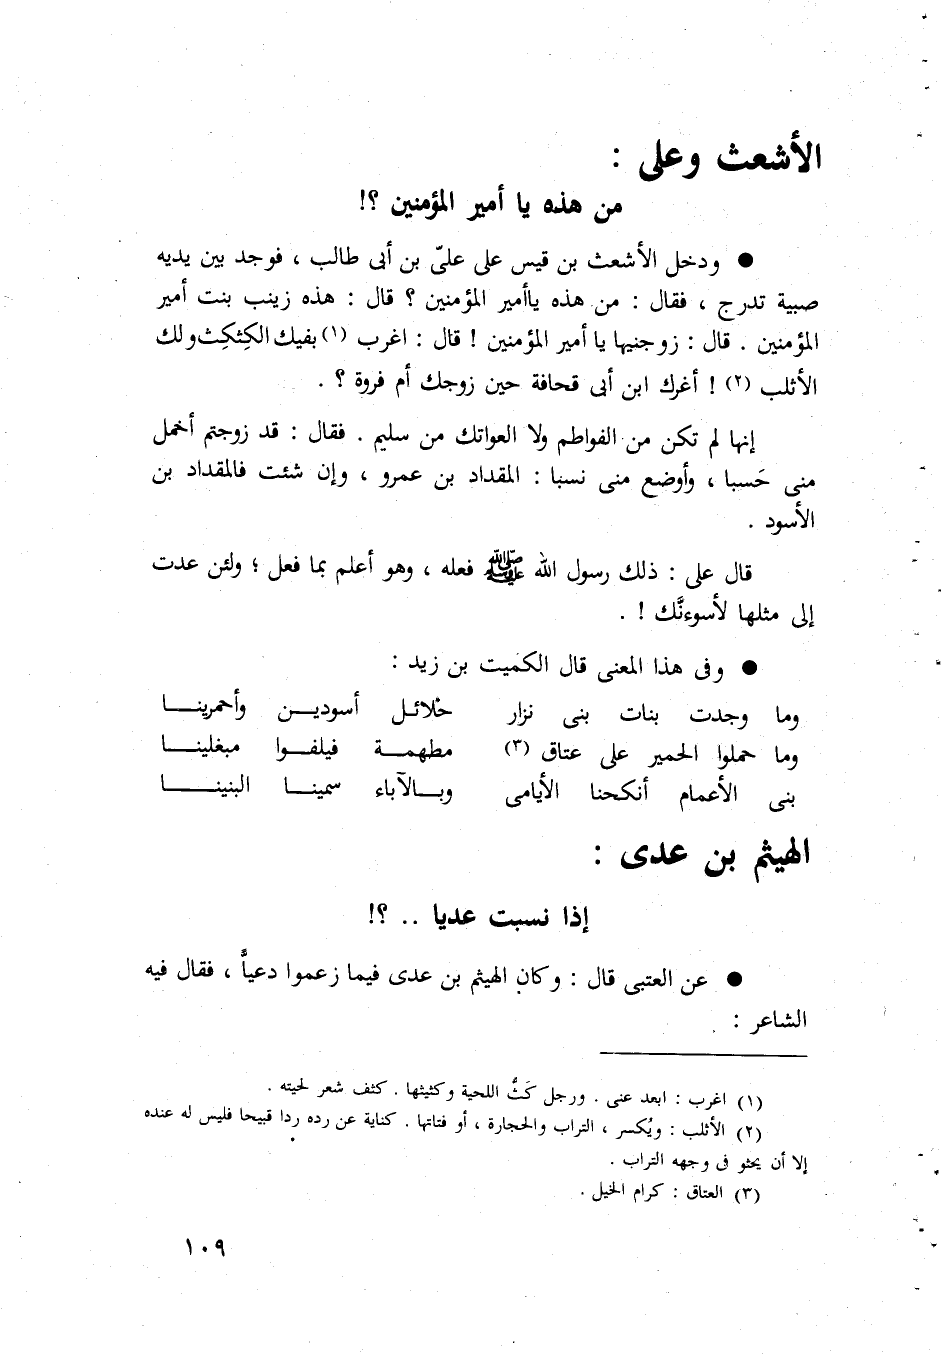 الأشعث وعلى :
من هذه يا أمير المؤمنين ؟!
● ودخل الأشعث بن قيس على علىّ بن أبى طالب ، فوجد بين يديه
صبية تدرج ، فقال : من هذه ياأمير المؤمنين ؟ قال : هذه زينب بنت أمير
المؤمنين . قال : زوجنيها يا أمير المؤمنين ! قال : اغرب (١) بفيك الكِثكِث ولك
الأثلب (٢) ! أغرك ابن أبى قحافة حين زوجك أم فروة ؟ .
إنها لم تكن من الفواطم ولا العواتك من سليم . فقال : قد زوجتم أخمل
منى حَسبا ، وأوضع منى نسبا : المقداد بن عمرو ، وإن شئت فالمقداد بن
الأسود .
قال على : ذلك رسول الله ﷺ فعله ، وهو أعلم بما فعل ؛ ولئن عدت
إلى مثلها لأسوءنَّك ! .
● وفى هذا المعنى قال الكميت بن زيد :
وما وجدت بنات بنى نزار حلائل أسودين وأحمرينا
وما حملوا الحمير على عتاق (٣) مطهمة فيلفوا مبغلينا
بنى الأعمام أنكحنا الأيامى وبالآباء سمينا البنينا
الهيثم بن عدى :
إذا نسبت عديا .. ؟!
● عن العتبى قال : وكان الهيثم بن عدى فيما زعموا دعياًّ ، فقال فيه
الشاعر :
(١) اغرب : ابعد عنى . ورجل كَثُّ اللحية وكثيثها . كثف شعر لحيته .
(٢) الأثلب : ويُكسر ، التراب والحجارة ، أو فتاتها . كناية عن رده ردا قبيحا فليس له عنده
إلا أن يحثو فى وجهه التراب .
(٣) العتاق : كرام الخيل .
١٠٩